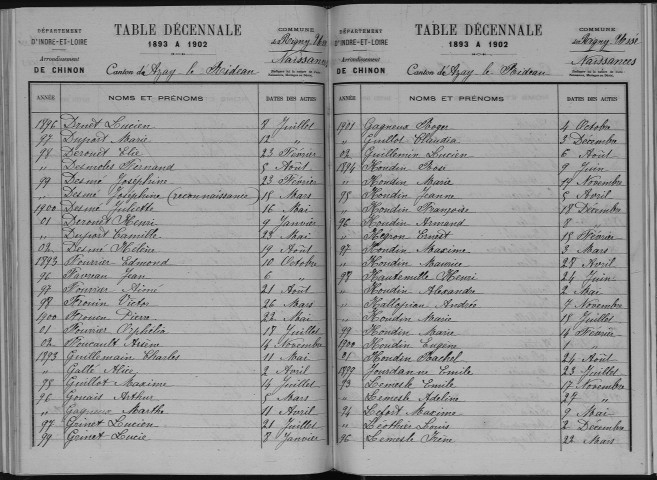 DÉPARTEMENT
D'INDRE-ET-LOIRE
Arrondissement
DE CHINON
TABLE DÉCENNALE
1893 A 1902
Canton d'Azay le Rideau
COMMUNE
de Rigny Ussé
Naissances
ANNÉE NOMS ET PRÉNOMS DATES DES ACTES
1896 Druet Lucien 8 Juillet
97 Dupont Marie 12 "
98 Derouet Élie 23 Février
" Desmoles Fernand 5 Août
99 Desmé Joséphine 23 Février
" Desmé Joséphine (reconnaissance) 15 Mars
1900 Desmé Juliette 16 Mai
01 Derouet Henri 9 Janvier
" Dupont Camille 28 Mai
02 Desmé Hélène 19 Août
1893 Fourrier Edmond 10 Octobre
96 Favreau Jean 6 "
97 Fourier Aimé 21 Août
98 Frouin Victor 26 Mars
1900 Pierre 22 Mai
01 Fourier Ophélia 17 Juillet
02 Foucault Arsène 14 Novembre
1893 Guillemain Charles 11 Mai
" Gallé Alice 2 Avril
95 Guillot Maxime 14 Juillet
96 Gouais Arthur 5 Mars
" Gagneux Marthe 11 Avril
97 Grinet Lucien 21 Juillet
99 Grinet Lucie 8 Janvier
DÉPARTEMENT
D'INDRE-ET-LOIRE
Arrondissement
DE CHINON
TABLE DÉCENNALE
1893 A 1902
Canton d'Azay le Rideau
COMMUNE
de Rigny Ussé
Naissances
ANNÉE NOMS ET PRÉNOMS DATES DES ACTES
1901 Gagneux Roger 4 Octobre
" Guillot Claudia 3 Décembre
02 Guillemin Lucien 6 Août
1894 Hondin Rose 9 Juin
" Hondin Marie 14 Novembre
95 Hondin Jeanne 5 Avril
" Hondin Françoise 18 Décembre
96 Hondin Armand 8 "
" Hegron Ernest 15 Février
97 Hondin Maxime 3 Mars
" Hondin Maurice 27 Avril
98 Hautemulle Henri 24 Juin
" Hondin Alexandre 2 Mai
" Hallopian Andrée 7 Novembre
" Hondin Marie 18 Juillet
99 Hondin Marie 14 Février
1900 Hondin Eugène 1 "
Hondin Rachel 24 Août
1899 Jourdanne Émile 23 Juillet
93 Lemesle Émile 17 Novembre
" Lemesle Adeline 27 "
94 Lefort Maxime 9 Mai
" Léothier Louis 2 Décembre
96 Lemesle Irène 22 Mars